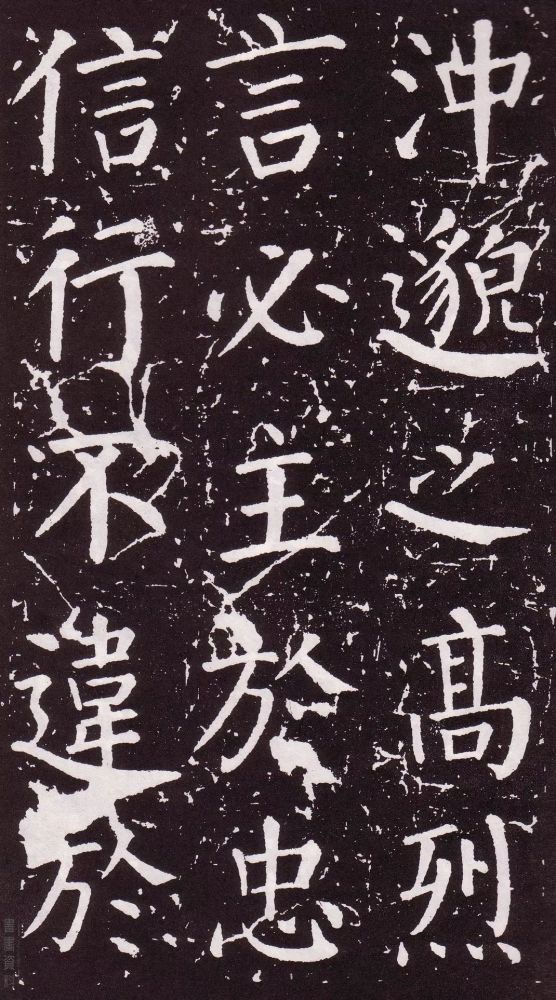 沖邈之高烈
言必主於忠
信行不違於